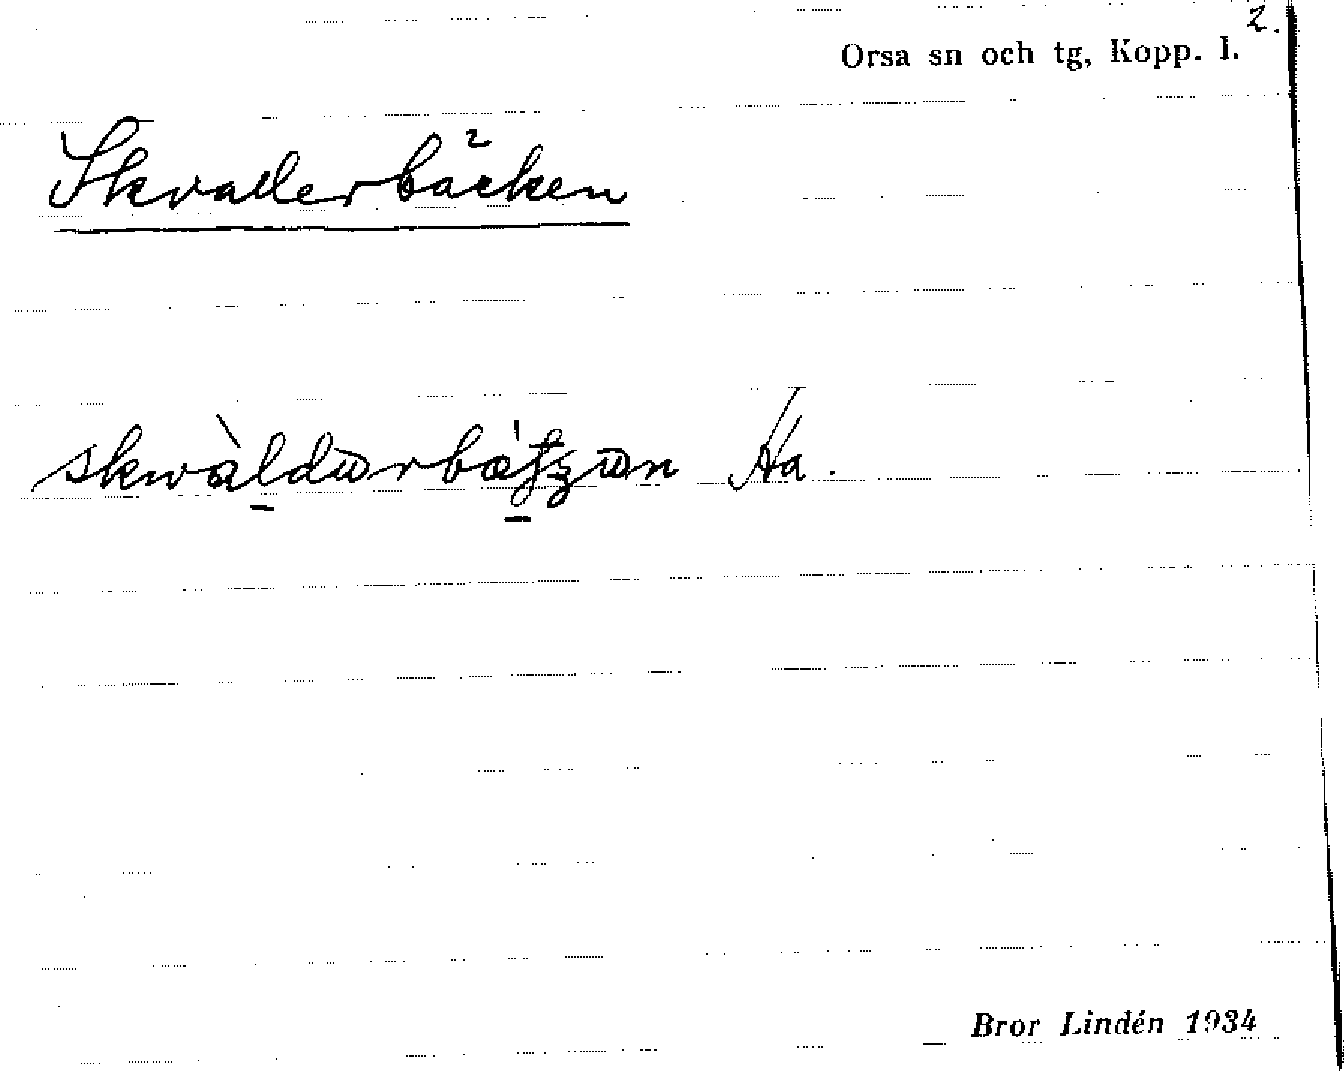 2.
Orsa sn och tg, Kopp. l.
Skvallerbäcken
Ha.
Bror Lindén 1934